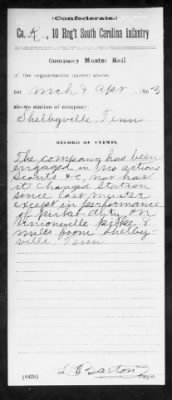 (Confederate.)
Co. K, 10 Reg't South Carolina Infantry
Company Muster Roll
of the organization named above,
for Mch & Apr, 1863
shows station of company,
Shelbyville, Tenn
RECORD OF EVENTS.
The company has been
engaged in no actions
scouts &c, nor has
it changed station
since last muster
except in performance
of picket duty on
Unionville pike 8
miles from Shelby-
ville, Tenn
(642b)
Copyist